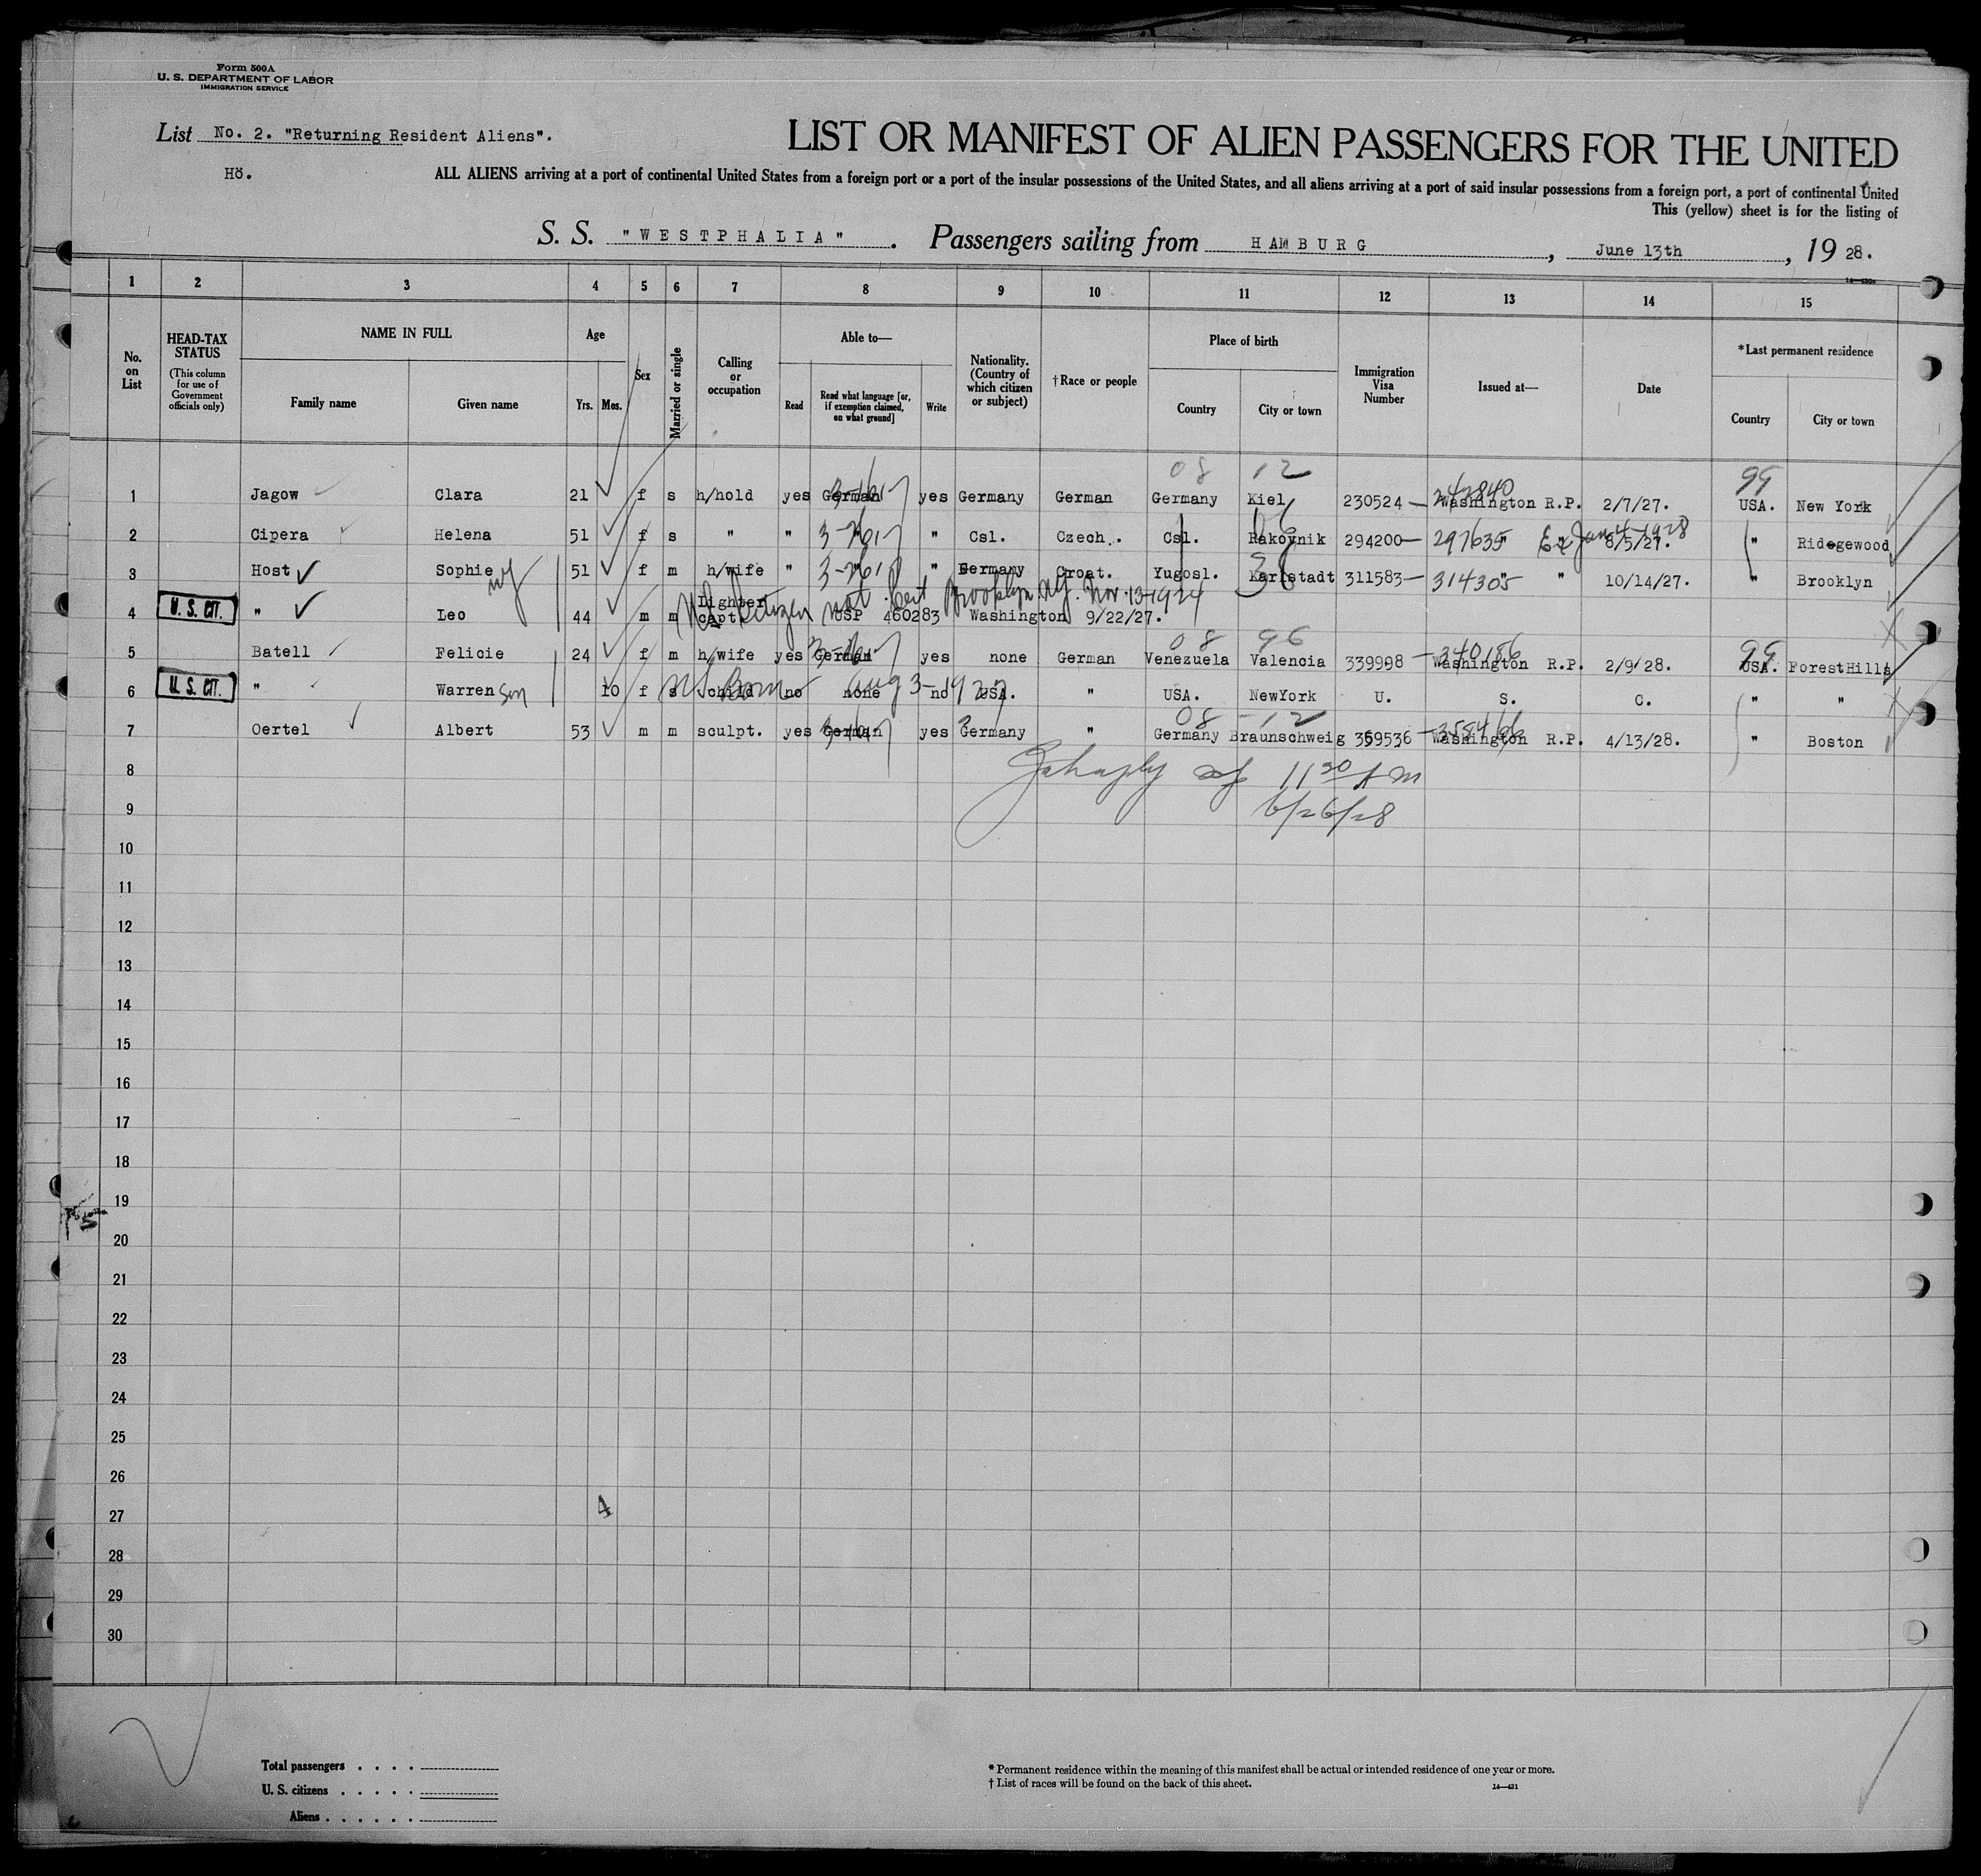 Form 500A
U. S. DEPARTMENT OF LABOR
IMMIGRATION SERVICE
List No. 2. "Returning Resident Aliens".
LIST OR MANIFEST OF ALIEN PASSENGERS FOR THE UNITED
Hö.
ALL ALIENS arriving at a port of continental United States from a foreign port or a port of the insular possessions of the United States, and all aliens arriving at a port of said insular possessions from a foreign port, a port of continental United
This (yellow) sheet is for the listing of
S. S. "WESTPHALIA". Passengers sailing from HAMBURG, June 13th, 1928.
1 2 3 4 5 6 7 8 9 10 11 12 13 14 15
No. on List
HEAD-TAX STATUS (This column for use of Government officials only)
NAME IN FULL
Family name Given name
Age
Yrs. Mos.
Sex
Married or single
Calling or occupation
Able to—
Read Read what language [or, if exemption claimed, on what ground] Write
Nationality. (Country of which citizen or subject)
† Race or people
Place of birth
Country City or town
Immigration Visa Number
Issued at—
Date
*Last permanent residence
Country City or town
08 12 242840 99
1 Jagow Clara 21 f s h/hold yes German yes Germany German Germany Kiel 230524 — Washington R.P. 2/7/27. USA. New York
2 Cipera Helena 51 f s " " " " Csl. Czech. Csl. Rakovnik 294200— 297635 " Ex Jan 4-1928 8/5/27. " Ridegewood
3 Host Sophie wf 51 f m h/wife " " " Germany Croat. Yugosl. Karlstadt 311583— 314305 " " 10/14/27. " Brooklyn
US Citizen nat. Cert Brooklyn NY. Nov. 13-1924
4 U. S. CIT. " Leo 44 m m Lighter capt. USP 460283 Washington 9/22/27.
08 96 340186 99
5 Batell Felicie 24 f m h/wife yes German yes none German Venezuela Valencia 339998 — Washington R.P. 2/9/28. USA. ForestHills
6 U. S. CIT. " Warren son 10 f s child no none no USA. " USA. NewYork U. S. C. " "
US Born Aug 3-1927
08-12 358466
7 Oertel Albert 53 m m sculpt. yes German yes Germany " Germany Braunschweig 359536 — Washington R.P. 4/13/28. " Boston
8 11 30 A M
9 6/26/28
10
11
12
13
14
15
16
17
18
19
20
21
22
23
24
25
26
27 4
28
29
30
Total passengers . . . .
U. S. citizens . . . . .
Aliens . . . . . .
* Permanent residence within the meaning of this manifest shall be actual or intended residence of one year or more.
† List of races will be found on the back of this sheet.
14—431